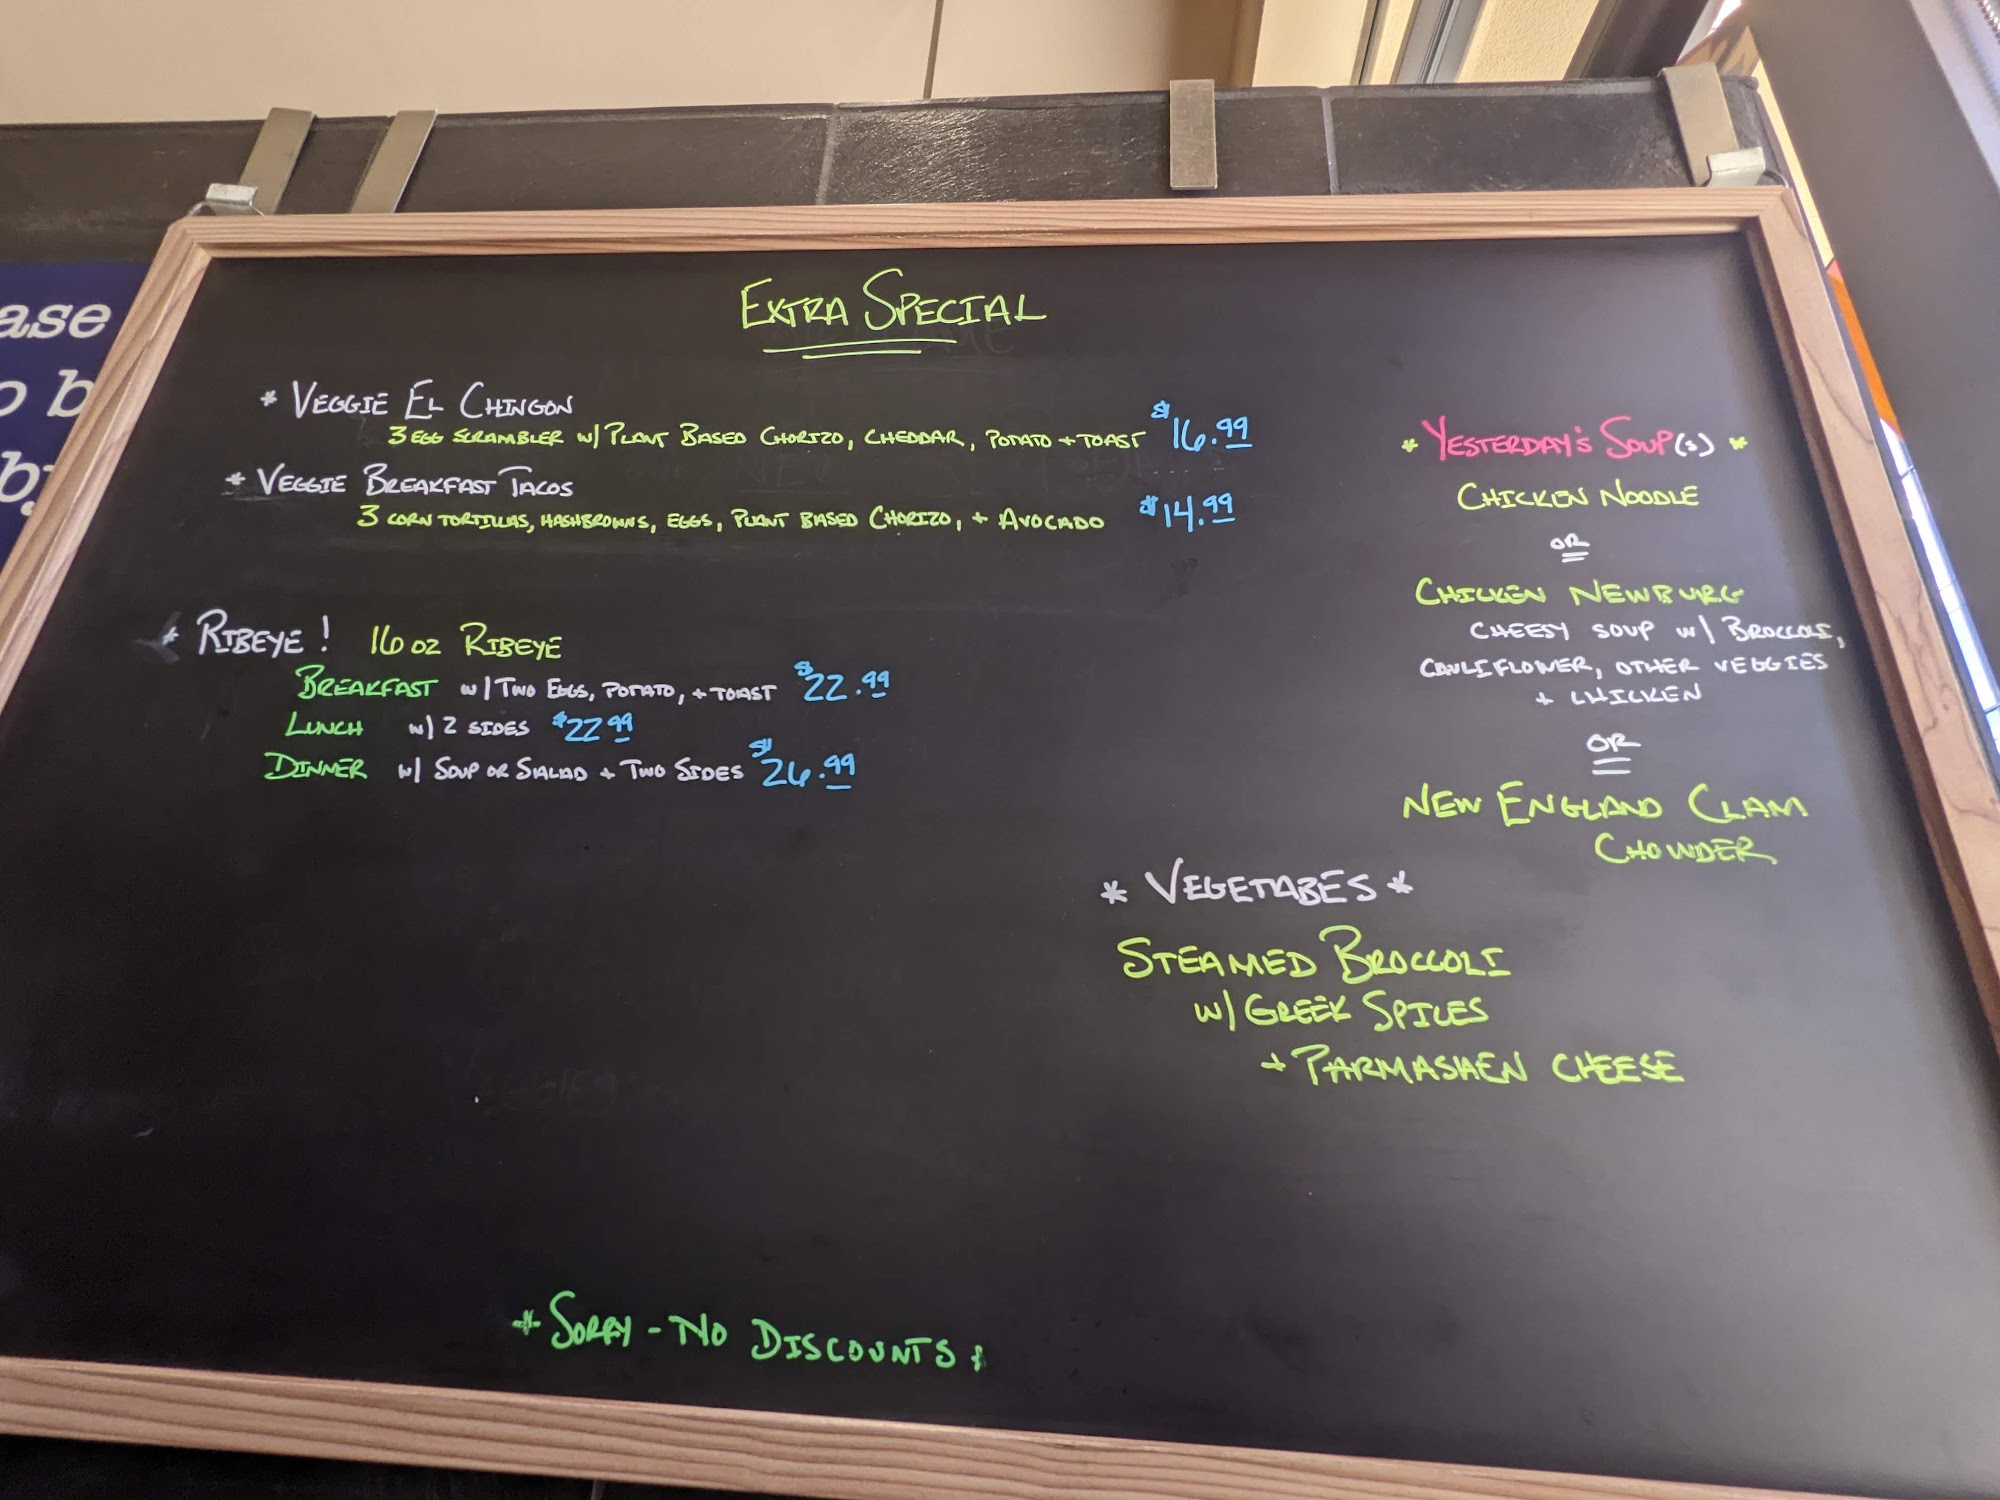 ase
o b
by
EXTRA SPECIAL
* VEGGIE EL CHINGON
3 EGG SCRAMBLER W/ PLANT BASED CHORIZO, CHEDDAR, POTATO + TOAST $16.99
* VEGGIE BREAKFAST TACOS
3 CORN TORTILLAS, HASHBROWNS, EGGS, PLANT BASED CHORIZO, + AVOCADO $14.99
* RIBEYE! 16 OZ RIBEYE
BREAKFAST W/ TWO EGGS, POTATO, + TOAST $22.99
LUNCH W/ 2 SIDES $22.99
DINNER W/ SOUP OR SALAD + TWO SIDES $26.99
* YESTERDAY'S SOUP(S) *
CHICKEN NOODLE
OR
CHICKEN NEWBURG
CHEESY SOUP W/ BROCCOLI,
CAULIFLOWER, OTHER VEGGIES
+ CHICKEN
OR
NEW ENGLAND CLAM
CHOWDER
* VEGETABES *
STEAMED BROCCOLI
W/ GREEK SPICES
+ PARMASHEN CHEESE
* SORRY - NO DISCOUNTS *